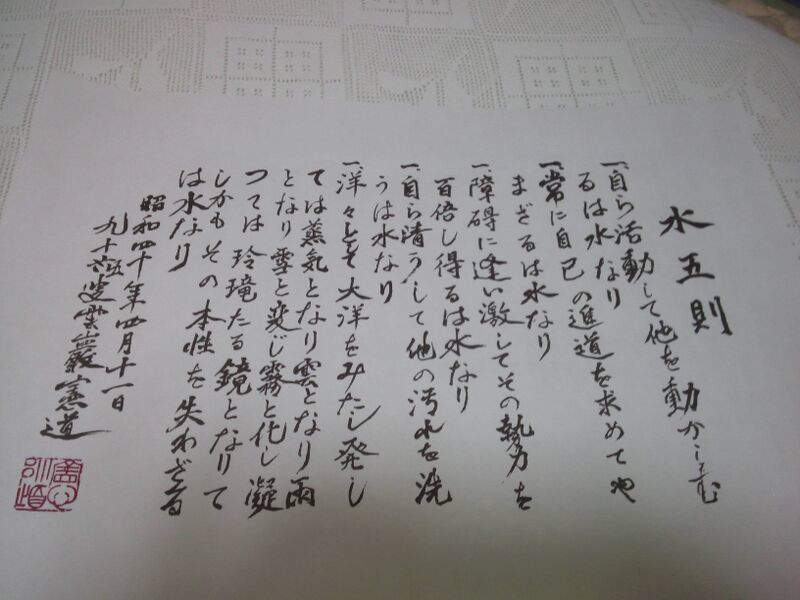 水五則
一、自ら活動して他を動かしむ
るは水なり
一、常に自己の進道を求めてや
まざるは水なり
一、障碍に逢い激してその勢力を
百倍し得るは水なり
一、自ら清うして他の汚れを洗
うは水なり
一、洋々として大洋をみたし発し
ては蒸気となり雲となり雨
となり雪と変じ霧と化し凝
つては玲瓏たる鏡となりて
しかもその本性を失わざる
は水なり
昭和四十年四月十一日
九十六叟雲巌憲道